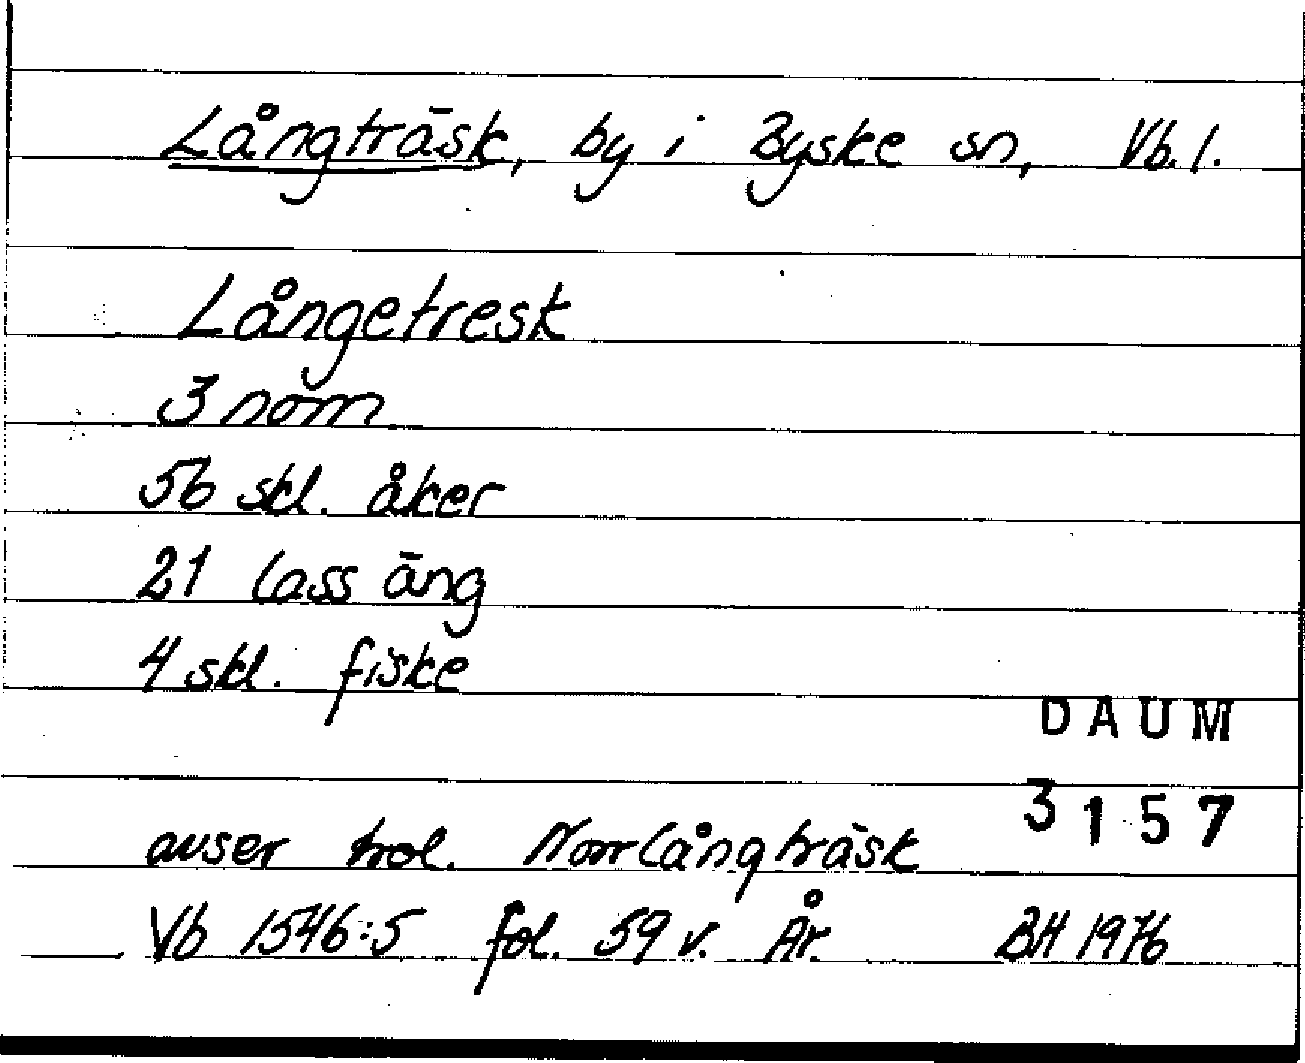 Långträsk, by i Byske sn, Vb. l.
Långetresk
3 nam
56 skl. åker
21 lass äng
4 skl. fiske
DAUM
3157
avser trol. Norrlångträsk
Vb 1546:5 fol. 59 v. År. BH 1976